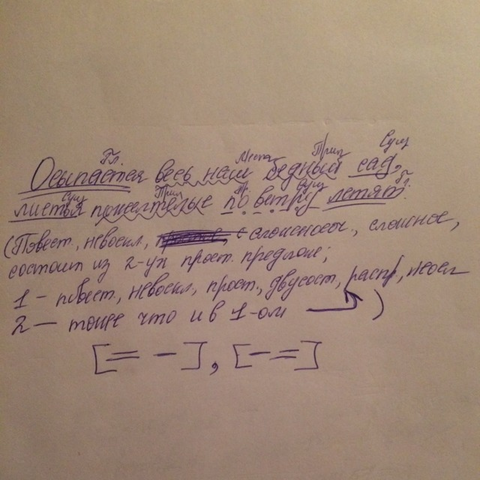 Гл. Мест. Прил. Сущ.
Осыпается весь наш бедный сад,
Сущ. Прил. Пр. Сущ. Гл.
листья пожелтелые по ветру летят
(Повест, невоскл, сложное,
состоит из 2-ух прост. предлож;
1 – повест, невоскл, прост., двусост, расп, неосл
2 — тоже что и в 1-ом )
[= –], [– =]